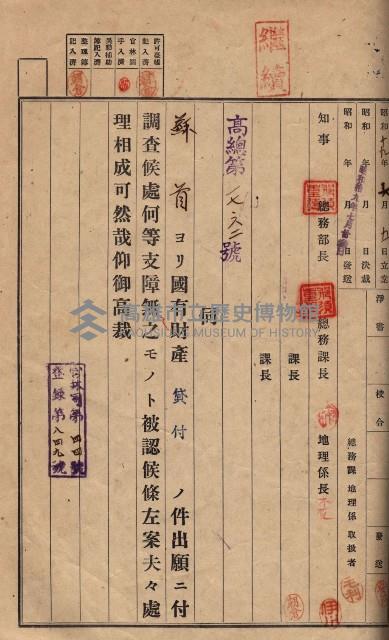 繼續
許可臺帳記入濟
官林圖手入濟
異動補助簿記入濟
整理簿記入濟
昭和十九年七月九日立案
昭和 年 月 日決裁
昭和 年 月 日發送
淨書
校合
發送
知事
總務部長
總務課長
地理係長
總務課地理係取扱者
課長
課長
高總第一七六二號
伺
蘇首ヨリ國有財產貸付ノ件出願ニ付
調查候處何等支障無之モノト被認候條左案夫々處
理相成可然哉仰御高裁
高雄市立歷史博物館
KAOHSIUNG MUSEUM OF HISTORY
官林司第四四號
登錄第八四九號
毛利